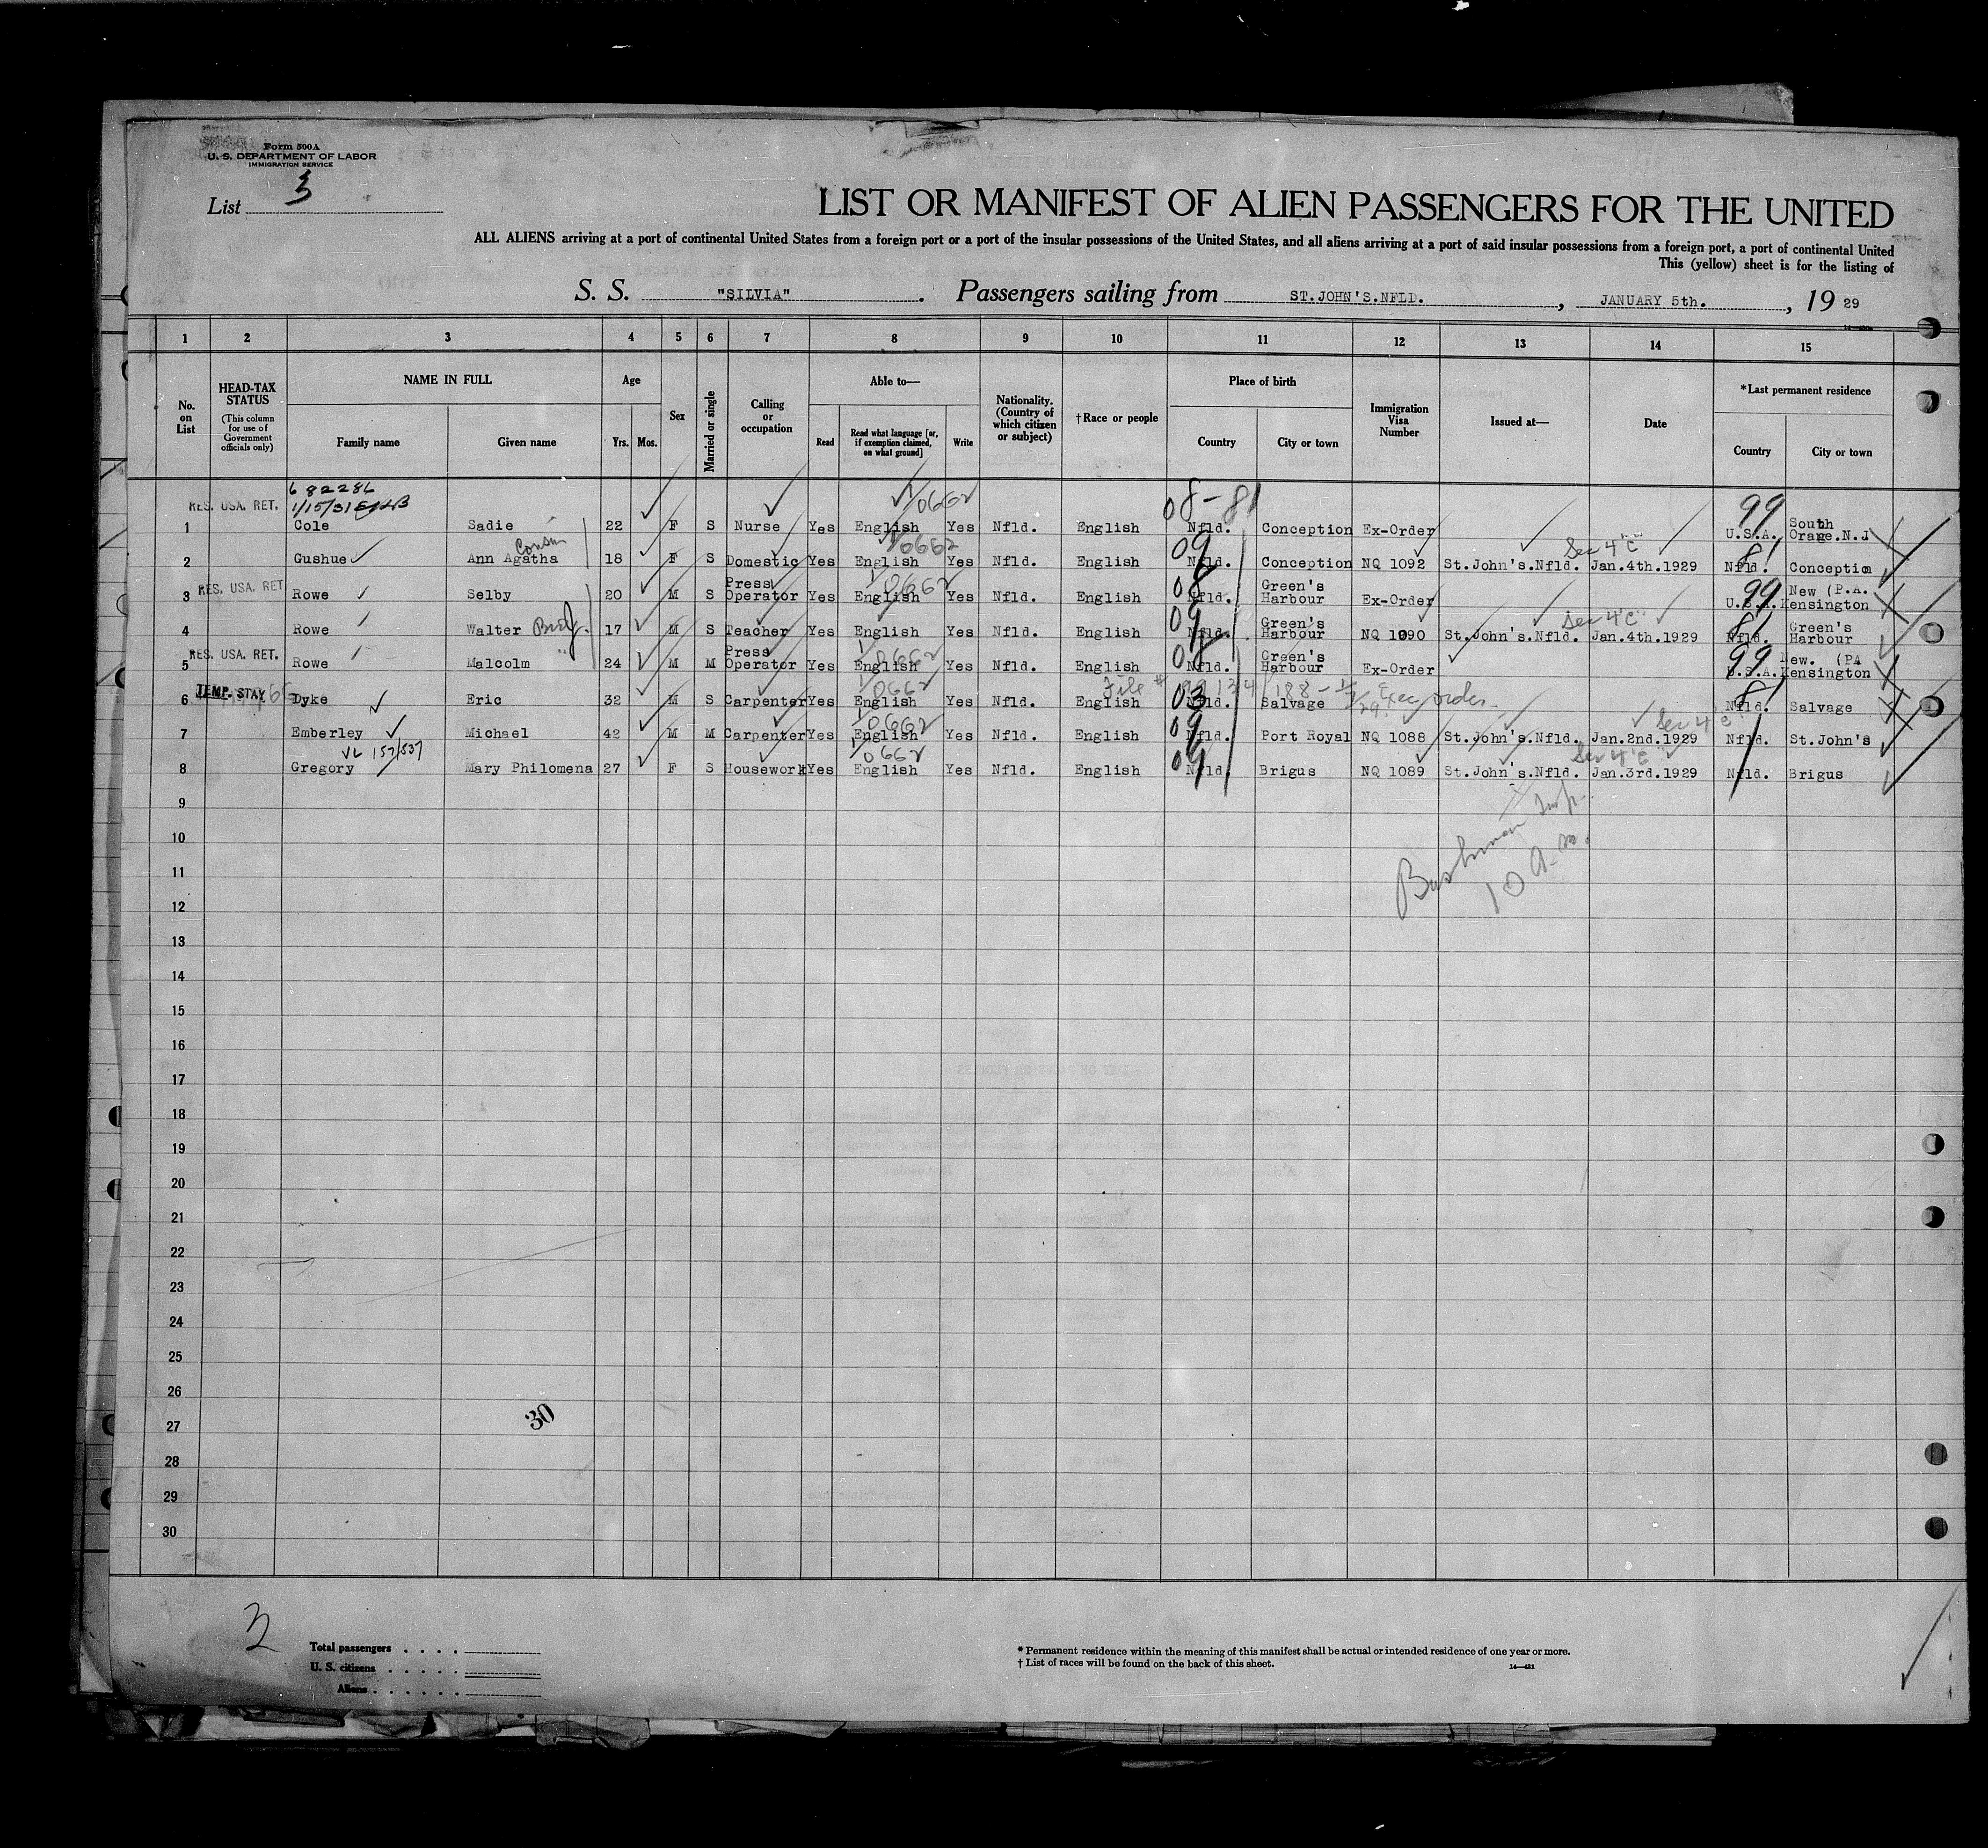 Form 500A
U. S. DEPARTMENT OF LABOR
IMMIGRATION SERVICE
List 3
LIST OR MANIFEST OF ALIEN PASSENGERS FOR THE UNITED
ALL ALIENS arriving at a port of continental United States from a foreign port or a port of the insular possessions of the United States, and all aliens arriving at a port of said insular possessions from a foreign port, a port of continental United
This (yellow) sheet is for the listing of
S. S. "SILVIA". Passengers sailing from ST.JOHN'S.NFLD., JANUARY 5th., 19 29
1 2 3 4 5 6 7 8 9 10 11 12 13 14 15
No. on List
HEAD-TAX STATUS (This column for use of Government officials only)
NAME IN FULL
Family name Given name
Age
Yrs. Mos.
Sex
Married or single
Calling or occupation
Able to—
Read Read what language [or, if exemption claimed, on what ground] Write
Nationality. (Country of which citizen or subject)
†Race or people
Place of birth
Country City or town
Immigration Visa Number
Issued at—
Date
*Last permanent residence
Country City or town
682286
1/15/31
1/0662 08-81 99
1 RES. USA. RET. Cole Sadie 22 F S Nurse Yes English Yes Nfld. English Nfld. Conception Ex-Order U.S.A. South Orange.N.J
Cousin 0662 09 Sec 4"C" 81
2 Gushue Ann Agatha 18 F S Domestic Yes English Yes Nfld. English Nfld. Conception NQ 1092 St.John's.Nfld. Jan.4th.1929 Nfld. Conception
0662 08 99
3 RES. USA. RET Rowe Selby 20 M S Press Operator Yes English Yes Nfld. English Nfld. Green's Harbour Ex-Order U.S.A. New (P.A. Kensington
09 Sec 4"C" 81
4 Rowe Walter 17 M S Teacher Yes English Yes Nfld. English Nfld. Green's Harbour NQ 1090 St.John's.Nfld. Jan.4th.1929 Nfld. Green's Harbour
0662 08 99
5 RES. USA. RET. Rowe Malcolm " 24 M M Press Operator Yes English Yes Nfld. English Nfld. Green's Harbour Ex-Order U.S.A. New. (PA Kensington
0662 File # 03 Exec order 81
6 TEMP. STAY Dyke Eric 32 M S Carpenter Yes English Yes Nfld. English Nfld. Salvage Nfld. Salvage
0662 09 Sec 4"C"
7 Emberley Michael 42 M M Carpenter Yes English Yes Nfld. English Nfld. Port Royal NQ 1088 St.John's.Nfld. Jan.2nd.1929 Nfld. St.John's
VL 157/537 0662 09 Sec 4"C"
8 Gregory Mary Philomena 27 F S Housework Yes English Yes Nfld. English Nfld. Brigus NQ 1089 St.John's.Nfld. Jan.3rd.1929 Nfld. Brigus
9
10
Bushman Insp.
10 a.m.
11
12
13
14
15
16
17
18
19
20
21
22
23
24
25
26
27
30
28
29
30
3
Total passengers
U. S. citizens
Aliens
* Permanent residence within the meaning of this manifest shall be actual or intended residence of one year or more.
† List of races will be found on the back of this sheet.
14—421